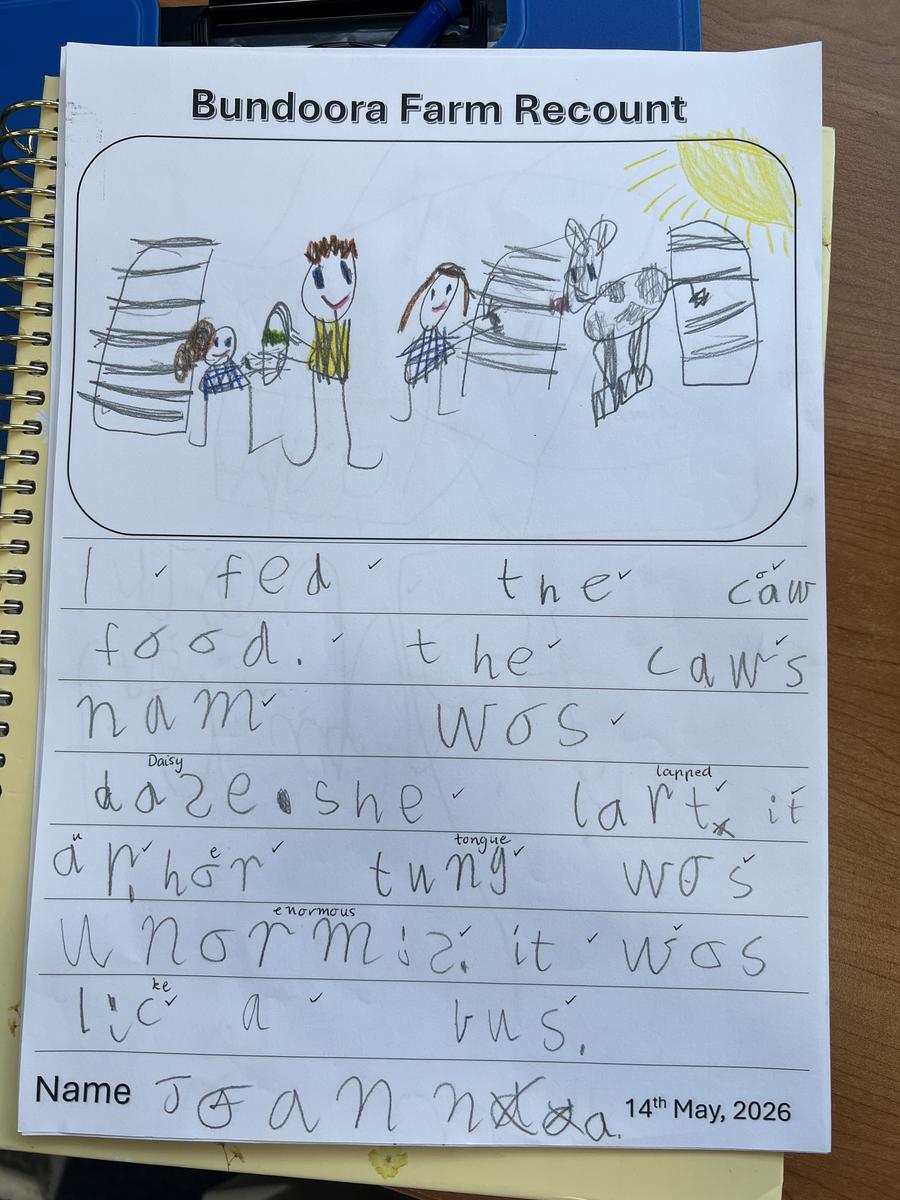 Bundoora Farm Recount
I fed the caw
o
food. the caw's
nam wos
Daisy lapped
daze. she lart it
u e tongue
ap. hor tung wos
enormous
unormis. it wos
ke
lic a bus.
Name Joanna. 14th May, 2026